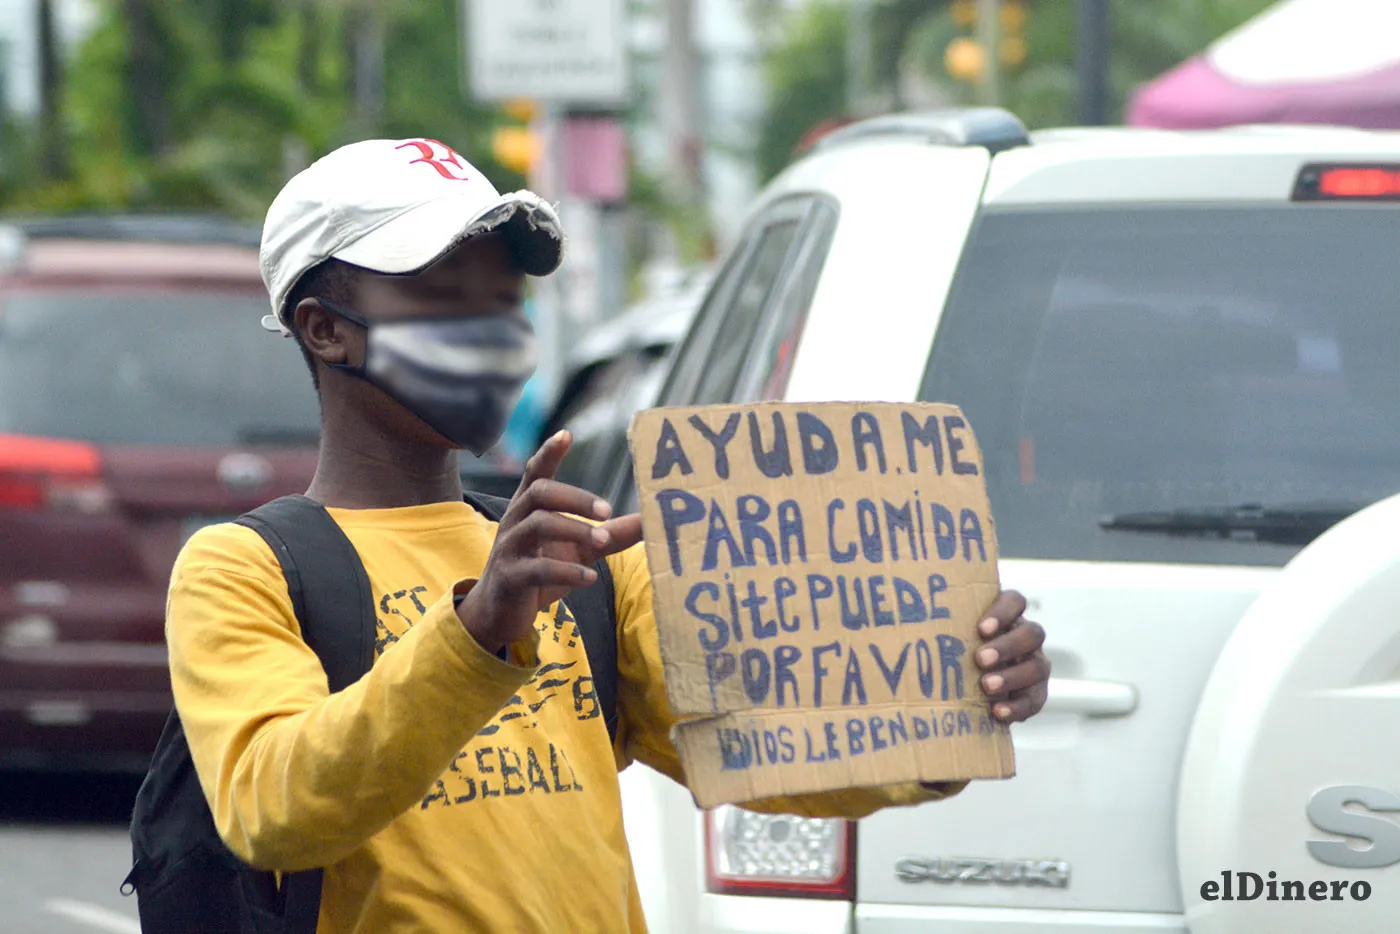 RF
AYUDA.ME
PARA COMiDA
SitePUEDE
PORFAVOR
DIOS LE BENDIGA
AST
B
ASEBALL
SUZUKI
S
elDinero